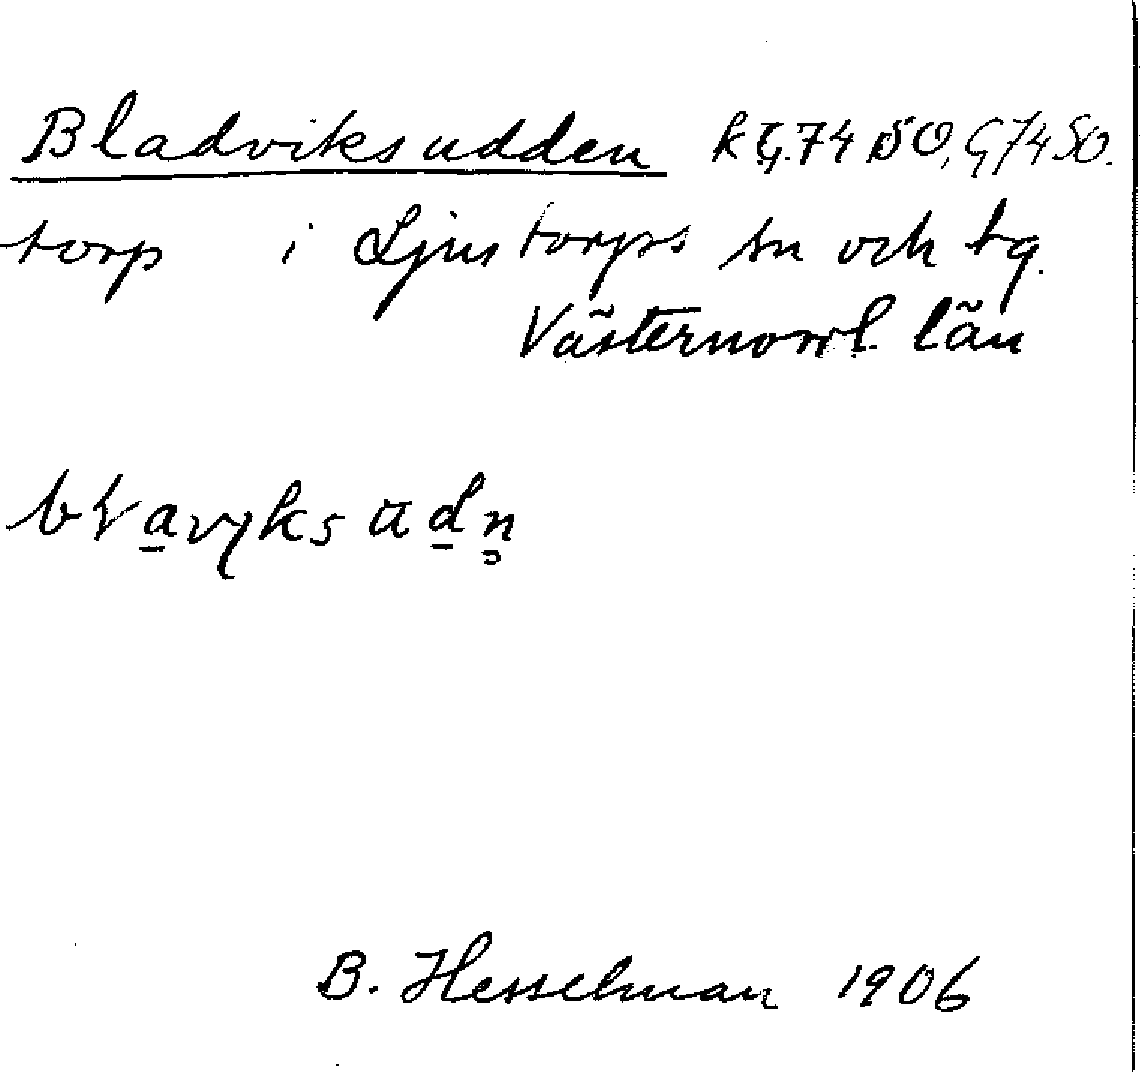 Bladviksudden RG.74 SO, G74SO.
torp i Ljustorps sn och tg.
Västernorrl. län
B. Hesselman 1906